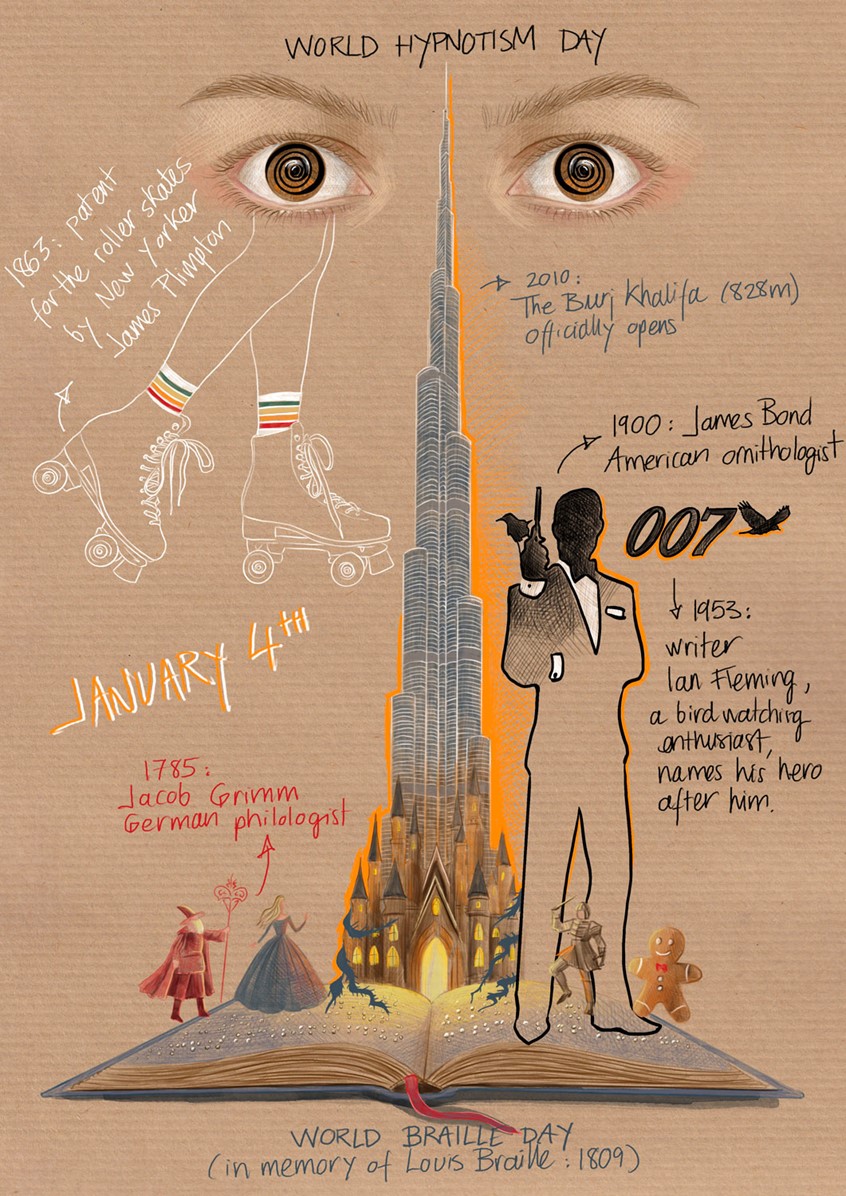 WORLD HYPNOTISM DAY
1863: patent
for the roller skates
by New Yorker
James Plimpton
2010:
The Burj Khalifa (828m)
officially opens
1900: James Bond
American ornithologist
007
1953:
writer
Ian Fleming,
a birdwatching
enthusiast,
names his hero
after him.
JANUARY 4TH
1785:
Jacob Grimm
German philologist
WORLD BRAILLE DAY
(in memory of Louis Braille: 1809)